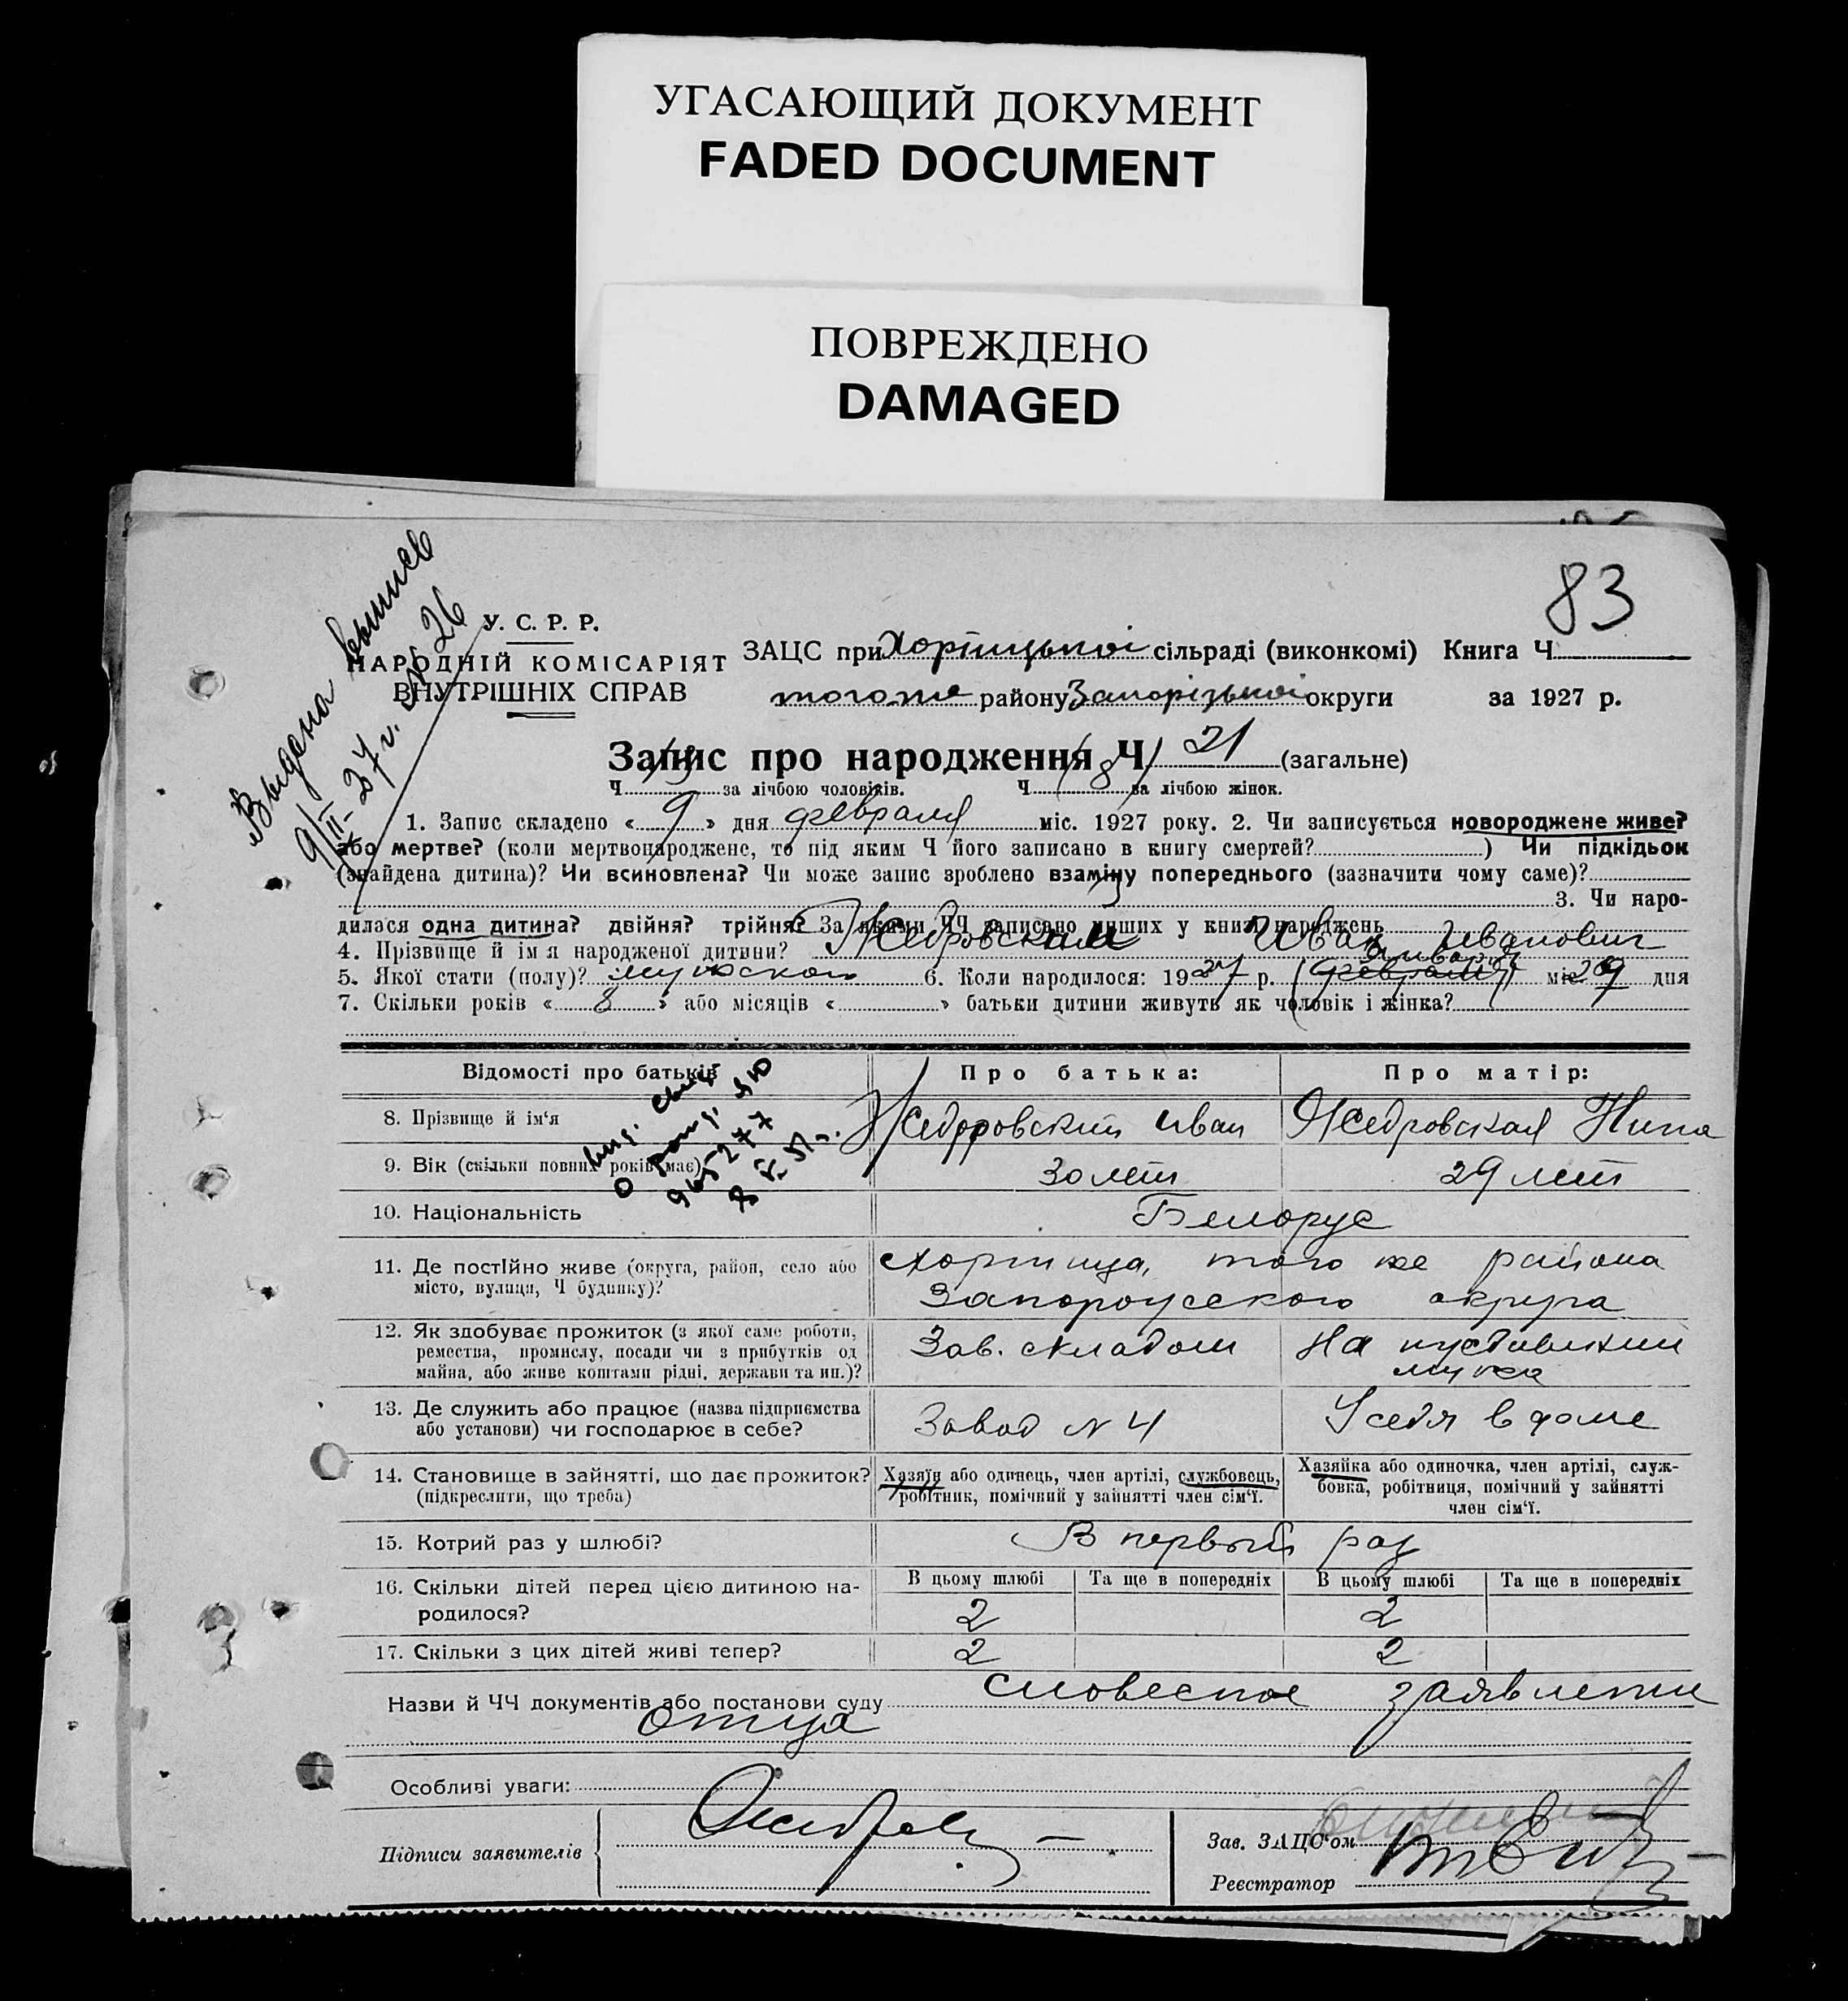 УГАСАЮЩИЙ ДОКУМЕНТ
FADED DOCUMENT
ПОВРЕЖДЕНО
DAMAGED
83
Выдана выпись
9/II-27 г. № 26
У. С. Р. Р.
НАРОДНІЙ КОМІСАРІЯТ
ВНУТРІШНІХ СПРАВ
ЗАЦС при Хортицькой сільраді (виконкомі) Книга Ч
того же району Запорізькой округи за 1927 р.
Запис про народження Ч 21 (загальне)
Ч 13 за лічбою чоловіків. Ч 8 за лічбою жінок.
1. Запис складено « 9 » дня февраля міс. 1927 року. 2. Чи записується новороджене живе?
або мертве? (коли мертвонароджене, то під яким Ч його записано в книгу смертей? ) Чи підкідьок
(знайдена дитина)? Чи всиновлена? Чи може запис зроблено взаміну попереднього (зазначити чому саме)?
3. Чи наро-
дилася одна дитина? двійня? трійня? За якими ЧЧ записано инших у книзі народжень
4. Прізвище й ім'я народженої дитини? Иван Иванович
января
5. Якої стати (полу)? мужского 6. Коли народилося: 1927 р. (февраля) міс. 29 дня
7. Скільки років « 8 » або місяців « » батьки дитини живуть як чоловік і жінка?
Відомості про батьків Про батька: Про матір:
8. Прізвище й ім'я Жедровский Иван Жедровская Нина
9. Вік (скільки повних років має) 30 лет 29 лет
10. Національність Белорус
11. Де постійно живе (округа, район, село або Хортица, того же района
місто, вулиця, Ч будинку)? Запорожского округа
12. Як здобуває прожиток (з якої саме роботи, Зав. складом На иждивении
ремества, промислу, посади чи з прибутків од мужа
майна, або живе коштами рідні, держави та ин.)?
13. Де служить або працює (назва підприємства Завод № 4 У себя в доме
або установи) чи господарює в себе?
14. Становище в зайнятті, що дає прожиток? Хазяїн або одинець, член артілі, службовець, Хазяйка або одиночка, член артілі, служ-
(підкреслити, що треба) робітник, помічний у зайнятті член сім'ї. бовка, робітниця, помічний у зайнятті
член сім'ї.
15. Котрий раз у шлюбі? В первый раз
16. Скільки дітей перед цією дитиною на- В цьому шлюбі Та ще в попередніх В цьому шлюбі Та ще в попередніх
родилося? 2 2
17. Скільки з цих дітей живі тепер? 2 2
Назви й ЧЧ документів або постанови суду словесное заявление
отца
Особливі уваги:
Підписи заявителів
Зав. ЗАЦС'ом
Реєстратор